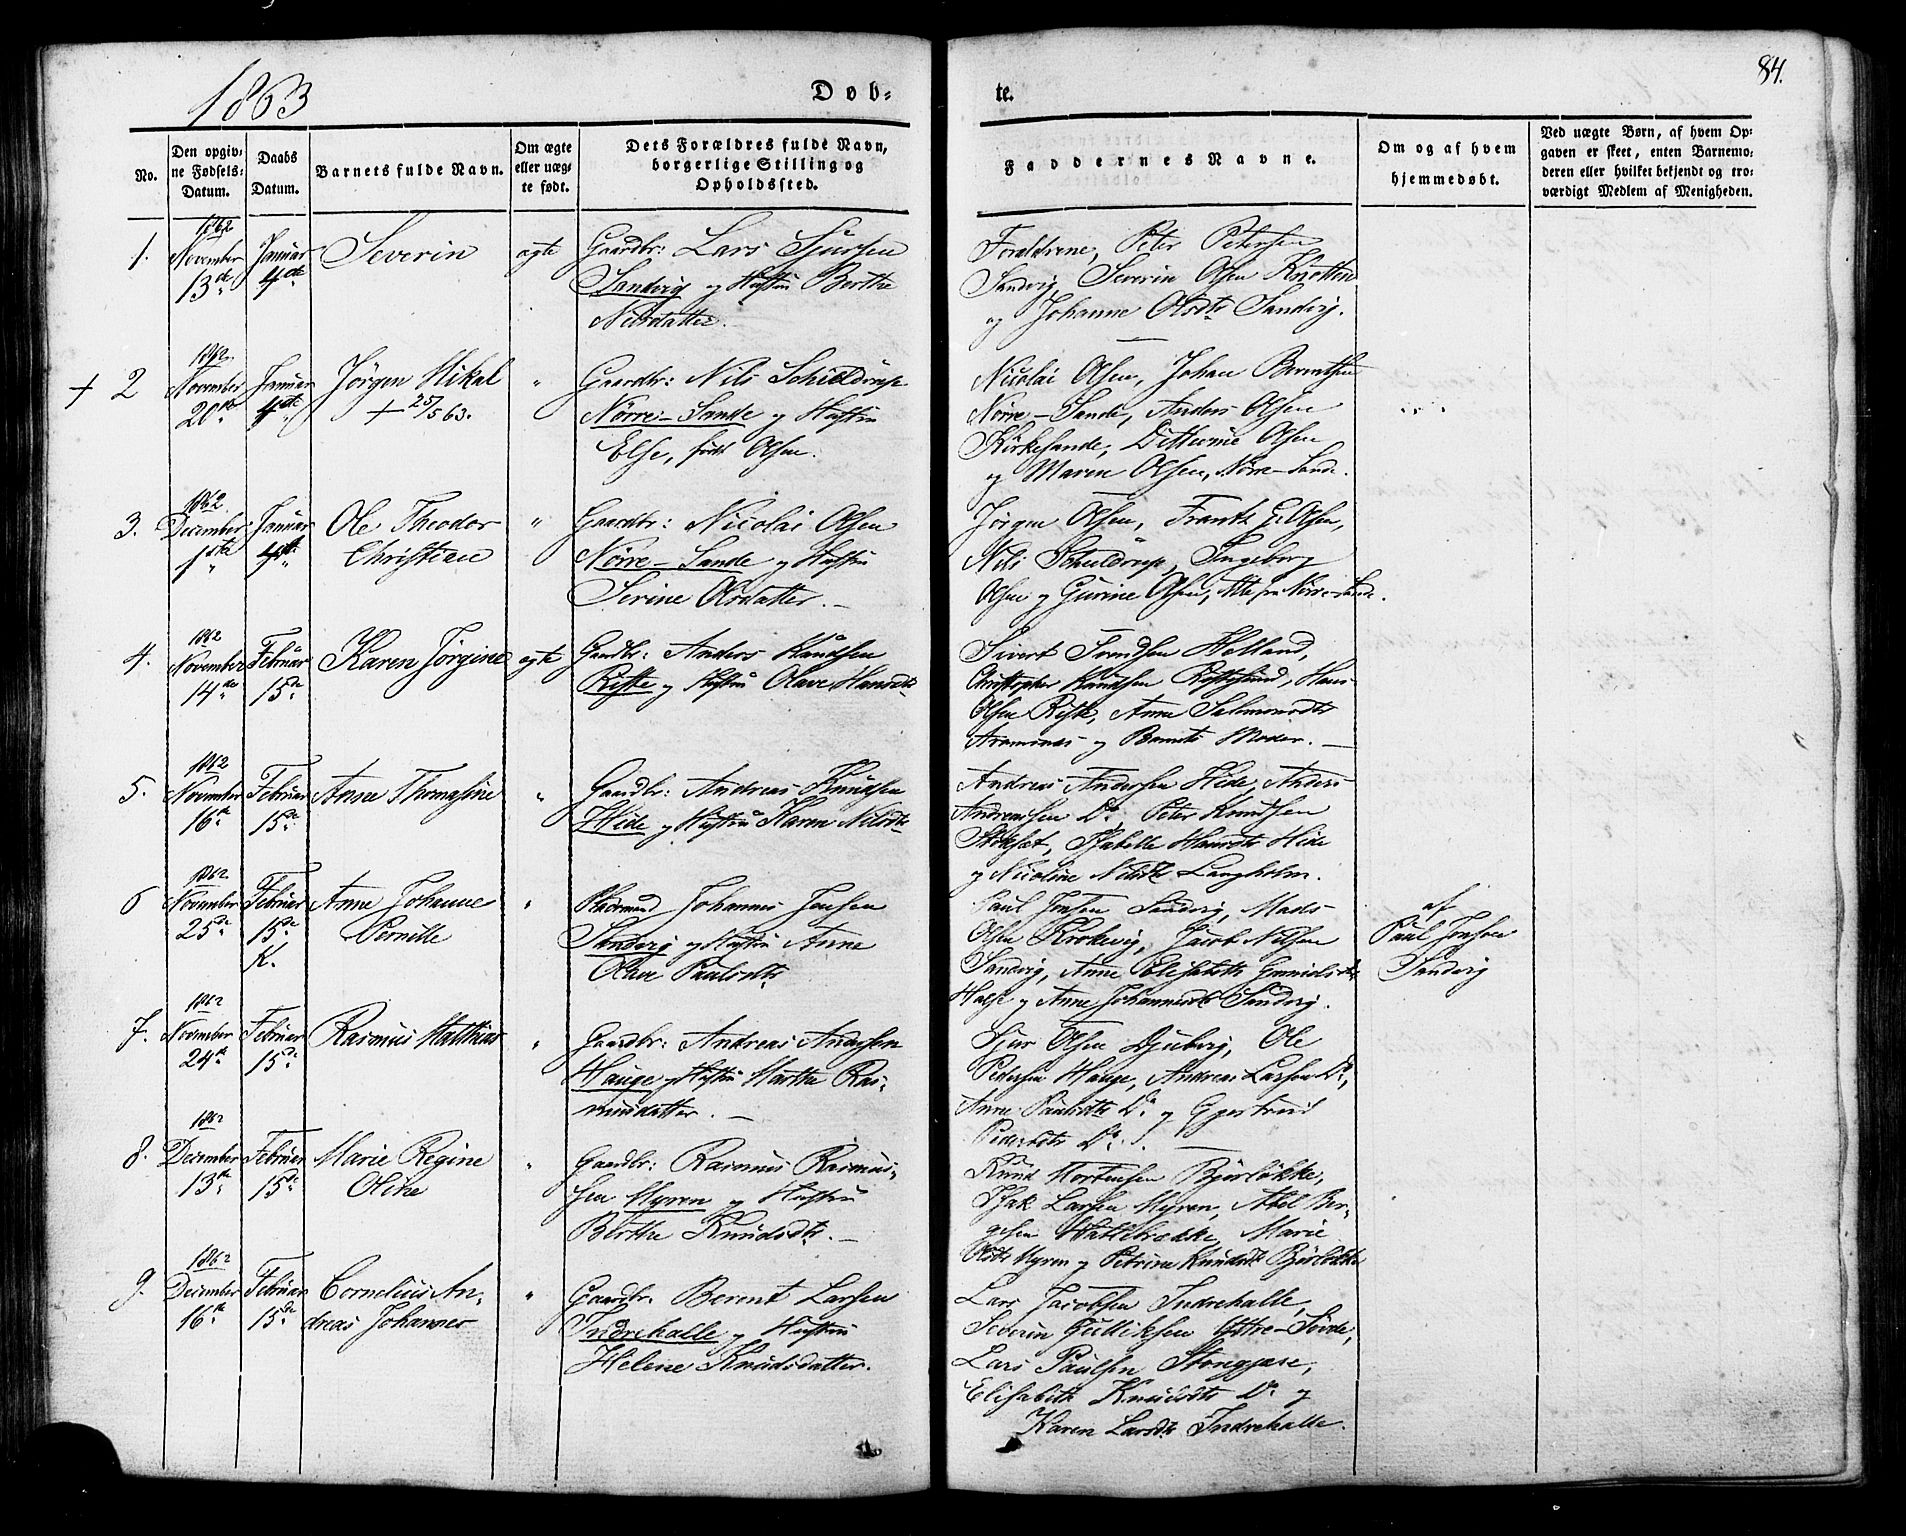 1863
Døb-
te.
84.
No.
Den opgiv-
ne Fødsels-
Datum.
Daabs
Datum.
Barnets fulde Navn.
Om ægte
eller uæg-
te født.
Dets Forældres fulde Navn,
borgerlige Stilling og
Opholdssted.
Faddernes Navne.
Om og af hvem
hjemmedøbt.
Ved uægte Børn, af hvem Op-
gaven er skeet, enten Barnemo-
deren eller hvilket bekjendt og tro-
værdigt Medlem af Menigheden.
1. 1862 November 13de Januar 4de Severin ægte
Gaardbr: Lars Sjursen
Sandvig og Hustru Berthe
Nilsdatter.
Foraldrene, Peter Petersen
Sandvig, Severin Olsen Knotten
og Johanne Olsdtr Sandvig.
+ 2 1862 November 20de Januar 4de Jörgen Mikal "
+ 25/5 63.
Gaardbr: Nils Schieldrup
Nörre-Sande og Hustru
Else, født Olsen.
Nicolai Olsen, Johan Berenthsen
Nörre-Sande, Anders Olsen
Kirkesande, Olsen
og Maren Olsen, Nörre-Sande.
3. 1862. December 1ste Januar 4de Ole Theodor "
Christian
Gaardbr: Nicolai Olsen
Nörre-Sande og Hustru
Serine Olsdatter.
Jörgen Olsen, Frantz Olsen,
Nils Schieldrup, Ingeborg
Olsen og Gurine Olsen, Alle fra Nörre-Sande.
4. 1862 November 14de Februar 15de Karen Jörgine ægte
Gaardbr: Anders Knudsen
Riste og Hustru Olave Hansdtr
Sivert Svendsen Holland,
Christopher Knudsen, Hans
Olsen Riste, Anne Salmonsdtr
og Barnets Moder.
5. 1862 November 16de Februar 15de Anne Thomasine "
Gaardbr: Andreas Knudsen
Hide og Hustru Karen Nilsdtr
Andreas Andersen Hide, Anders
Andreassen Do, Peter Knudsen
Stokset, Isabelle Hansdtr Hide
og Nicoline Nilsdtr Langholm.
6 1862 November 25de Februar 15de K. Anne Johanne "
Pernille
Johannes Jensen
Sandvig og Hustru Anne
Olave Paulsdtr
Paul Jonsen Sandvig, Mads
Olsen Krokvig, Jacob Nilsen
Sandvig, Anne Elisabeth
og Anne Johannesdtr Sandvig.
af
Paul Jonsen
Sandvig
7. 1862 November 24de Februar 15de Rasmus Matthias "
Gaardbr: Andreas Andersen
Hauge og Hustru Marthe Ras-
musdatter.
Sjur Olsen Djubvig, Ole
Pedersen Hauge, Andreas Larsen Do,
Anne Paulsdtr Do og Gjertrud
Pedersdtr Do.
8. 1862 December 13de Februar 15de Marie Regine "
Oline
Gaardbr: Rasmus Rasmus-
sen Myren og Hustru
Berthe Knudsdtr.
Knud Mortensen Björlökke,
Isak Larsen Myren, Abel Ber-
gesen, Marie
Olsdtr Myren og Petrine Knudsdtr Björlökke
9. 1862 December 16de Februar 15de Cornelius An- "
dreas Johannes
Gaardbr. Berent Larsen
Indrehalle og Hustru
Helene Knudsdatter.
Lars Jacobsen Indrehalle,
Severin Gulliksen Yttre-Sövde,
Lars Paulsen,
Elisabeth Knudsdtr Do og
Karen Larsdtr Indrehalle.